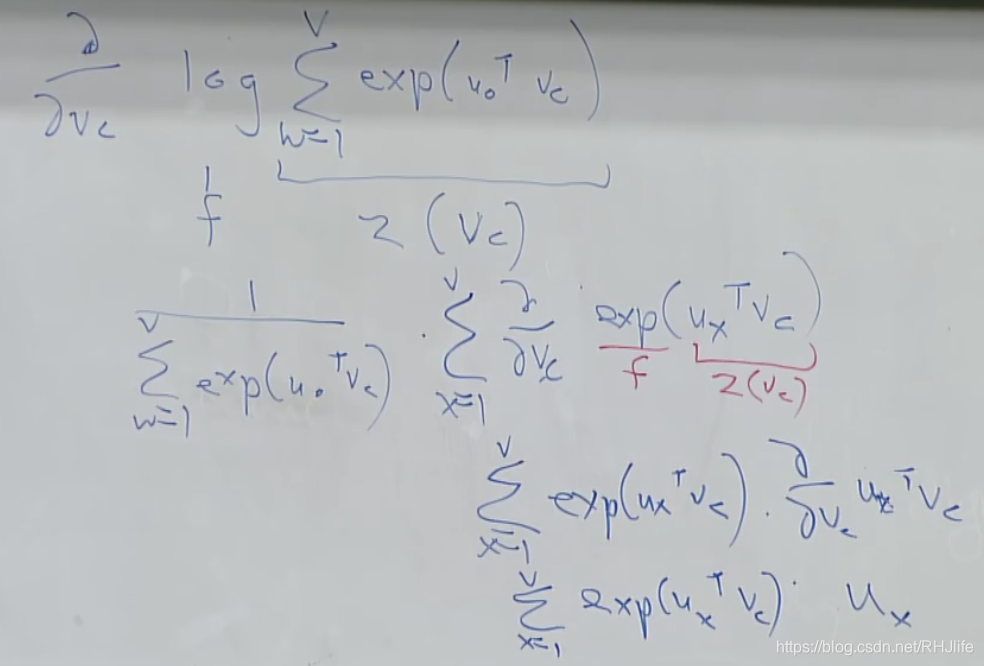 ∂/∂v_c log ∑_{w=1}^{V} exp(u_o^T v_c)
f z(v_c)
1/(∑_{w=1}^{V} exp(u_o^T v_c)) · ∑_{x=1}^{V} ∂/∂v_c exp(u_x^T v_c)
f z(v_c)
∑_{x=1}^{V} exp(u_x^T v_c) · ∂/∂v_c u_x^T v_c
∑_{x=1}^{V} exp(u_x^T v_c) · u_x
https://blog.csdn.net/RHJlife